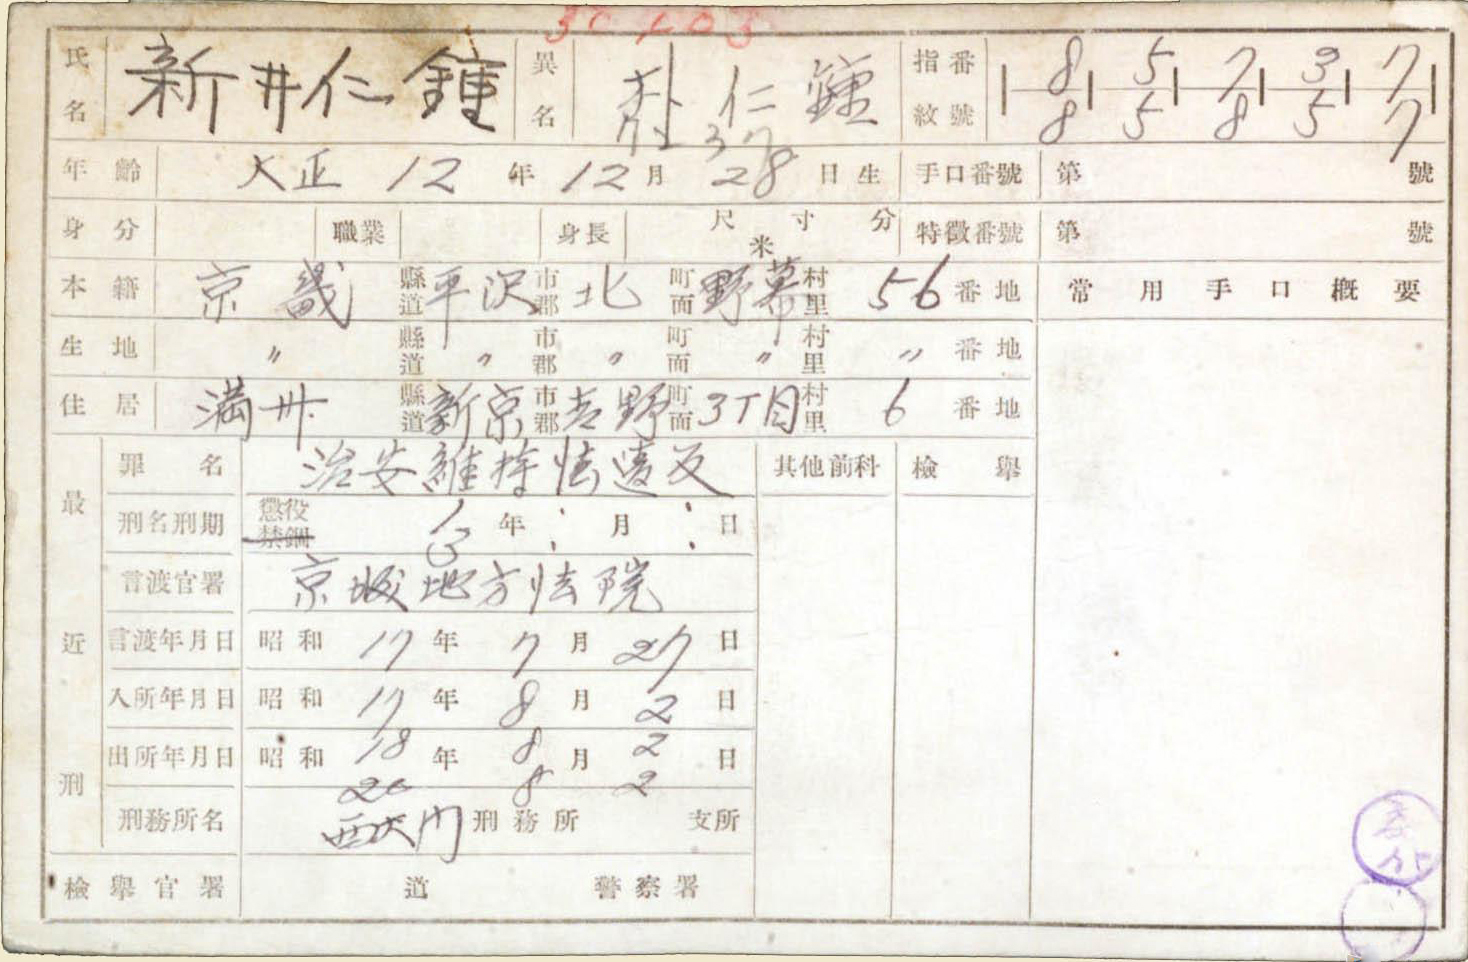 30403
氏名 新井仁鍾 異名 朴仁鍾 指紋番號 8 5 7 3 7
8 5 8 5 7
37
年齡 大正 12 年 12 月 28 日生 手口番號 第 號
身分 職業 身長 尺 寸 分 米 特徵番號 第 號
本籍 京畿 縣道 平沢 市郡 北 町面 野幕 村里 56 番地 常用手口概要
生地 〃 縣道 〃 市郡 〃 町面 〃 村里 〃 番地
住居 満州 縣道 新京 市郡 吉野 町面 3丁目 村里 6 番地
最近刑
罪名 治安維持法違反 其他前科 檢擧
刑名刑期 懲役 禁錮 年 月 日
言渡官署 京城地方法院
言渡年月日 昭和 17 年 7 月 27 日
入所年月日 昭和 17 年 8 月 2 日
出所年月日 昭和 18 年 8 月 2 日
20 8 2
刑務所名 西大門 刑務所 支所
檢擧官署 道 警察署